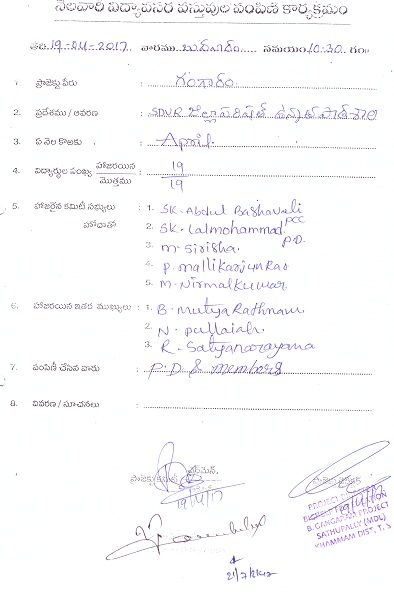 నెలవారి విద్యావసర వస్తువుల పంపిణి కార్యక్రమం
తేది 19-04-2017 వారము బుధవారం సమయం 10:30 గం॥
1. ప్రాజెక్టు పేరు : గంగారం
2. ప్రదేశము / ఆవరణ : SDNR జిల్లా పరిషత్ ఉన్నత పాఠశాల
3. ఏ నెల కొఱకు : April
4. విద్యార్థుల సంఖ్య హాజరయిన : 19
మొత్తము 19
5. హాజరైన కమిటీ సభ్యులు : 1. SK. Abdul Bashavali
హోదాతో 2. SK. Lalmohammad PCC
3. M. Sirisha P.D.
4. P. Mallikarjun Rao
5. M. Nirmal Kumar
6. హాజరయిన ఇతర ముఖ్యులు : 1. B. Mutya Rathnam
2. N. Pullaiah
3. R. Satyanarayana
7. పంపిణి చేసిన వారు : P.D & members
8. వివరణ / సూచనలు :
ప్రాజెక్టు కమిటీ ఛైర్మెన్.
19/4/17
PROJECT
B. GANGARAM PROJECT
SATHUPALLY (MDL)
KHAMMAM DIST. T.S